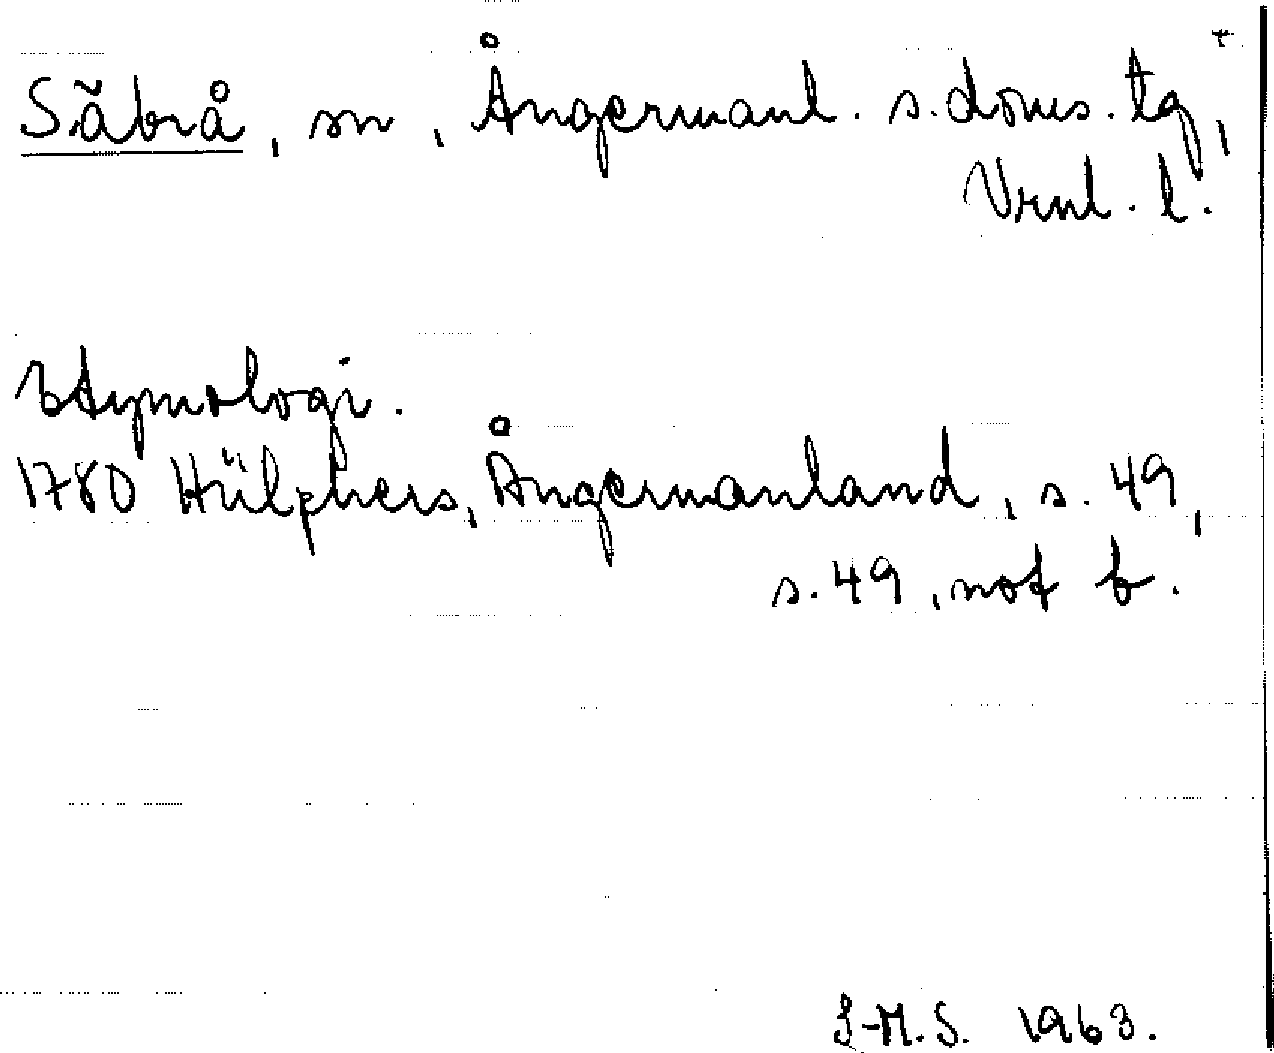 Säbrå, sn, Ångermanl. s. doms. tg,
Vrnl. l.
Etymologi.
1780 Hülphers, Ångermanland, s. 49,
s. 49, not b.
1963.